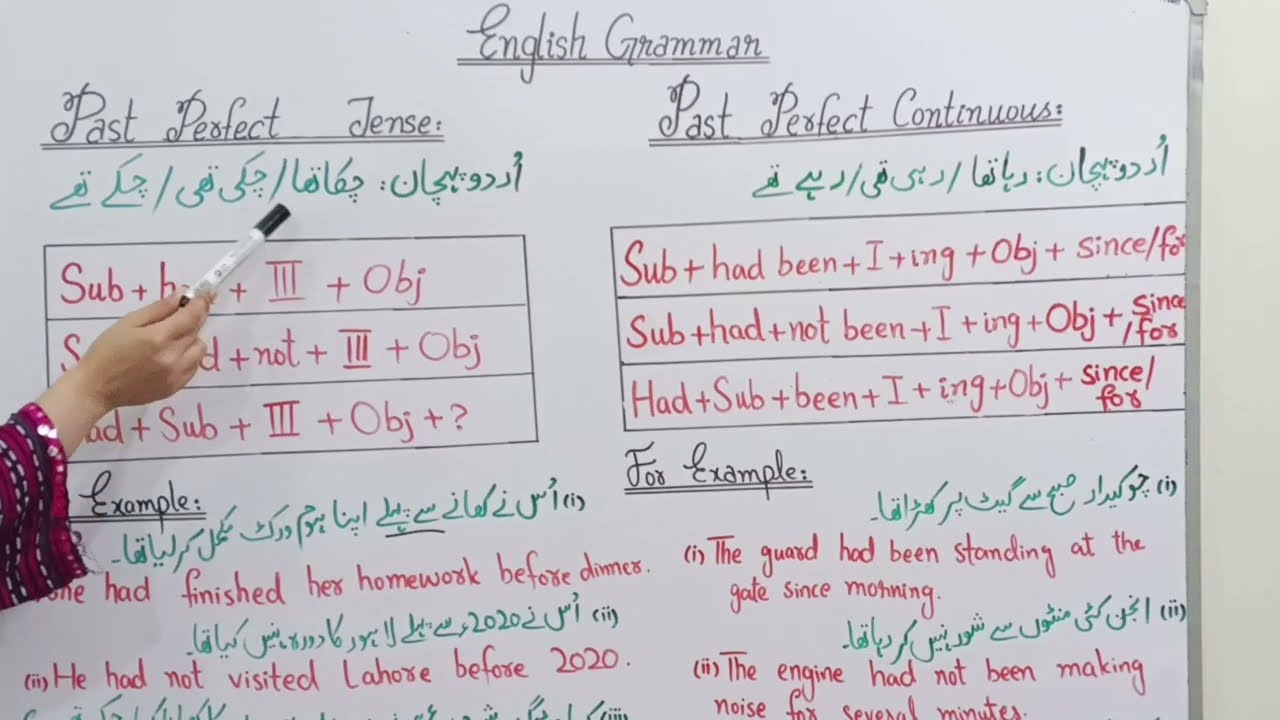 English Grammar
Past Perfect Tense:
اُردو پہچان: چکا تھا/چکی تھی/چکے تھے
Sub + + III + Obj
+ not + III + Obj
+ Sub + III + Obj + ?
Example:
(i) اُس نے کھانے سے پہلے اپنا ہوم ورک مکمل کر لیا تھا۔
had finished her homework before dinner.
(ii) اُس نے 2020ء سے پہلے لاہور کا دورہ نہیں کیا تھا۔
(ii) He had not visited Lahore before 2020.
(iii)
Past Perfect Continuous:
اُردو پہچان: رہا تھا/رہی تھی/رہے تھے
Sub + had been + I + ing + Obj + since/for
Sub + had + not been + I + ing + Obj + since/for
Had + Sub + been + I + ing + Obj + since/for
For Example:
(i) چوکیدار صبح سے گیٹ پر کھڑا تھا۔
(i) The guard had been standing at the
gate since morning.
(ii) انجن کئی منٹوں سے شور نہیں کر رہا تھا۔
(ii) The engine had not been making
noise for several minutes.